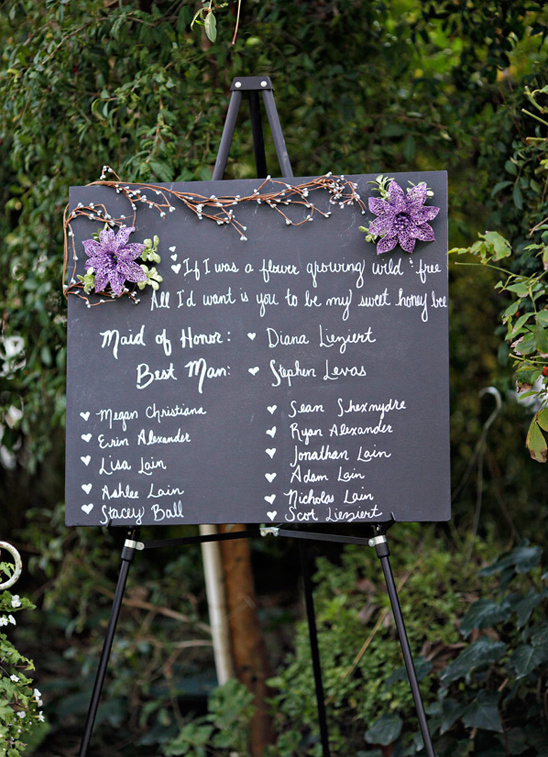 If I was a flower growing wild & free
All I'd want is you to be my sweet honey bee
Maid of Honor: Diana Liezert
Best Man: Stephen Levas
Megan Christiana
Erin Alexander
Lisa Lain
Ashlee Lain
Stacey Ball
Sean Shexnydre
Ryan Alexander
Jonathan Lain
Adam Lain
Nicholas Lain
Scot Liezert